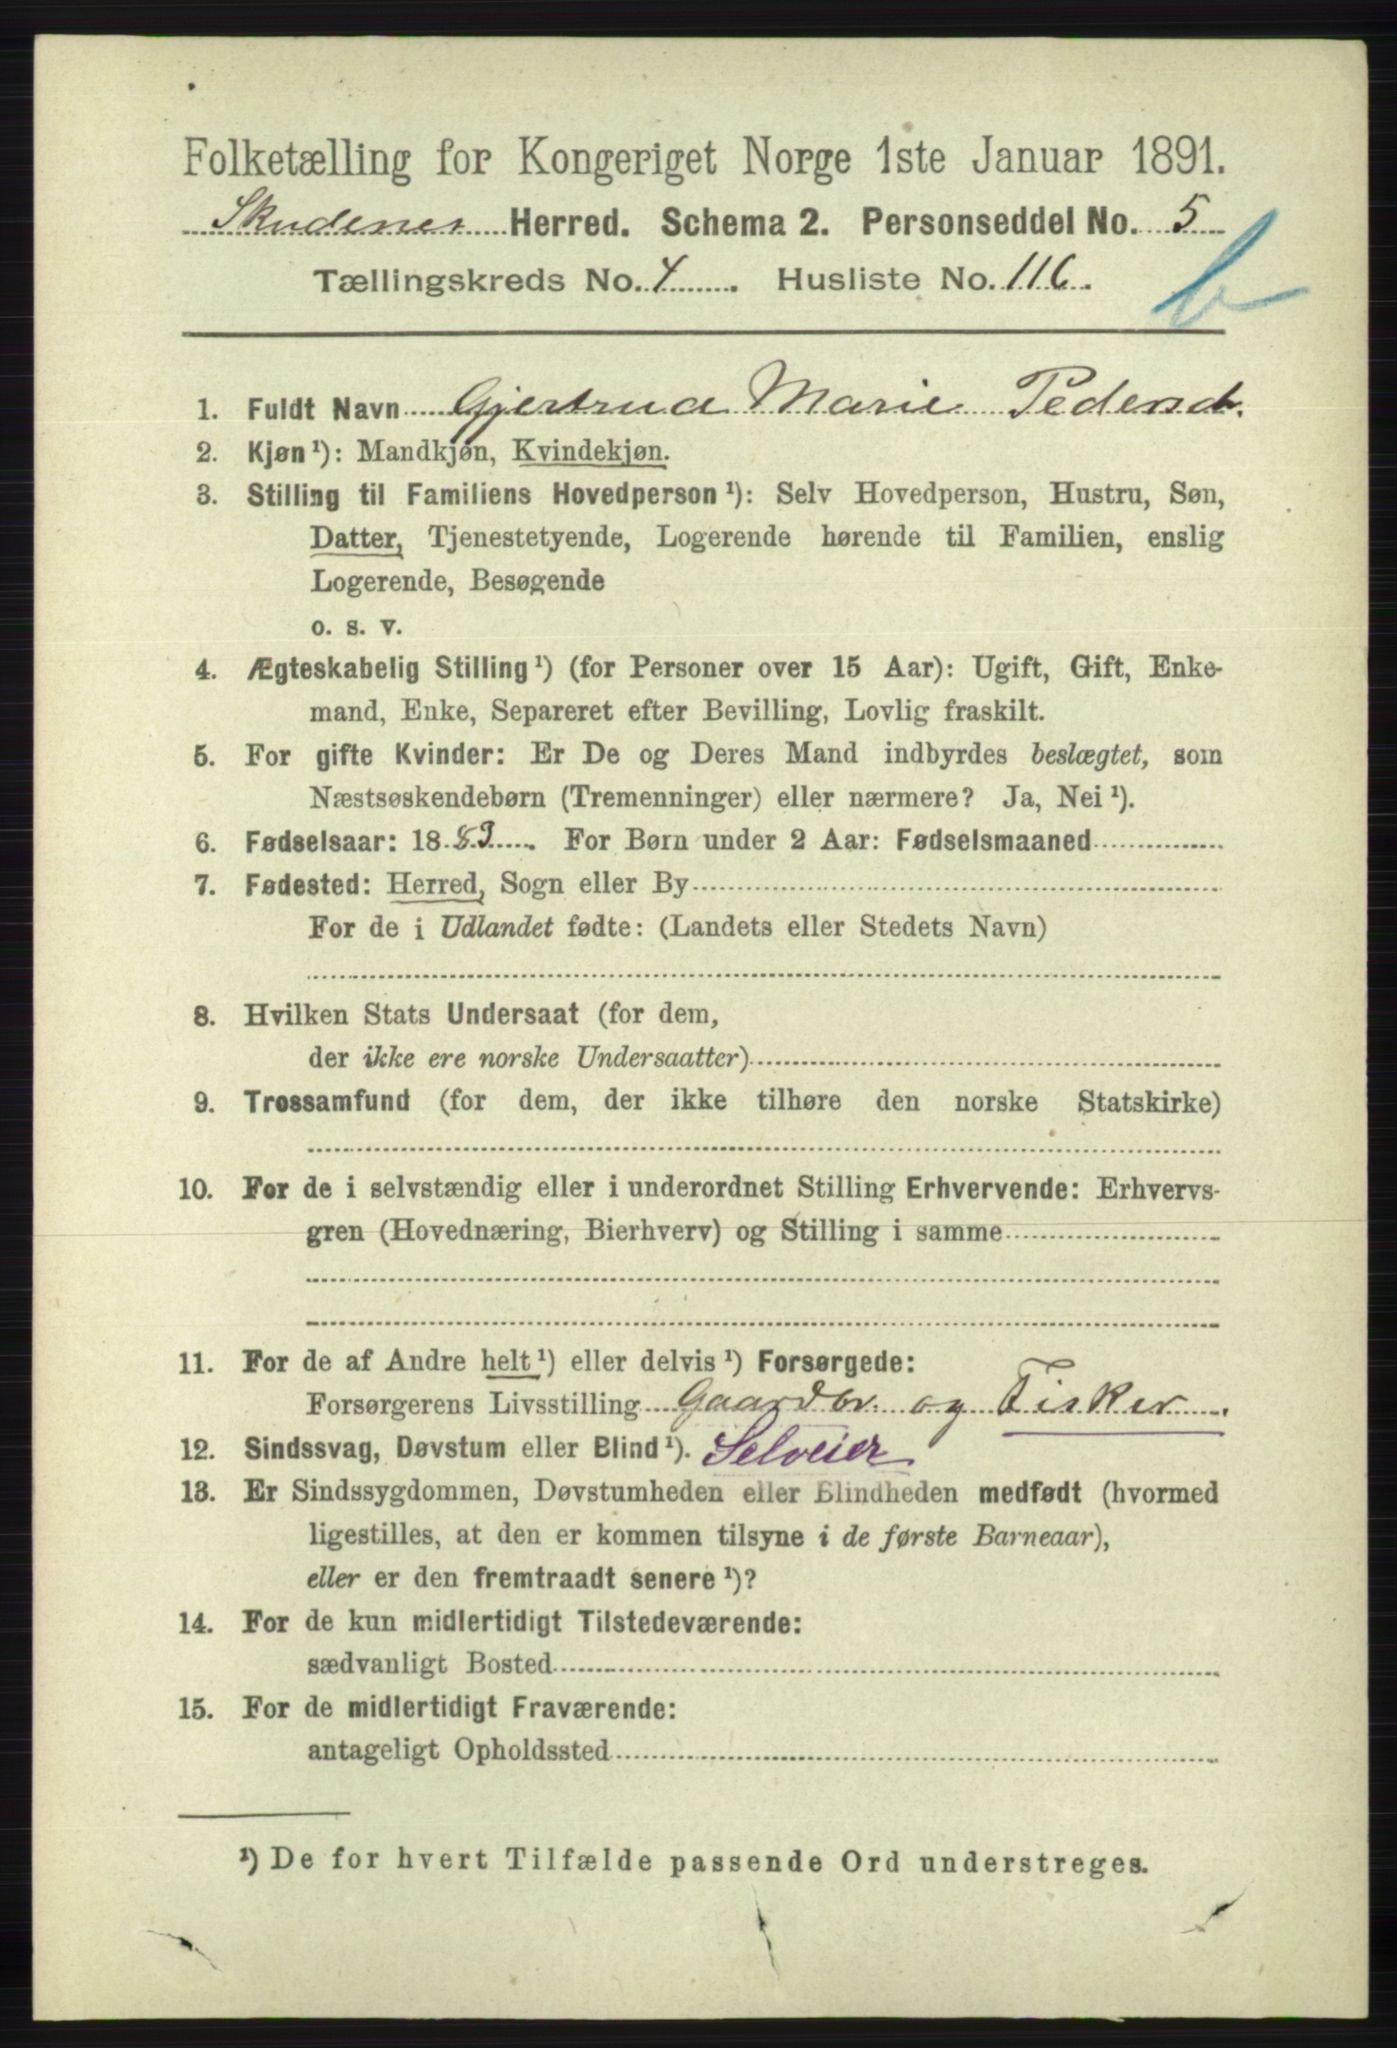 Folketælling for Kongeriget Norge 1ste Januar 1891.
Skudenes Herred. Schema 2. Personseddel No. 5
Tællingskreds No. 4. Husliste No. 116.
b
1. Fuldt Navn Gjertrud Marie
2. Kjøn ¹): Mandkjøn, Kvindekjøn.
3. Stilling til Familiens Hovedperson ¹): Selv Hovedperson, Hustru, Søn,
Datter, Tjenestetyende, Logerende hørende til Familien, enslig
Logerende, Besøgende
o. s. v.
4. Ægteskabelig Stilling ¹) (for Personer over 15 Aar): Ugift, Gift, Enke-
mand, Enke, Separeret efter Bevilling, Lovlig fraskilt.
5. For gifte Kvinder: Er De og Deres Mand indbyrdes beslægtet, som
Næstsøskendebørn (Tremenninger) eller nærmere? Ja, Nei ¹).
6. Fødselsaar: 1883. For Børn under 2 Aar: Fødselsmaaned
7. Fødested: Herred, Sogn eller By
For de i Udlandet fødte: (Landets eller Stedets Navn)
8. Hvilken Stats Undersaat (for dem,
der ikke ere norske Undersaatter)
9. Trossamfund (for dem, der ikke tilhøre den norske Statskirke)
10. For de i selvstændig eller i underordnet Stilling Erhvervende: Erhvervs-
gren (Hovednæring, Bierhverv) og Stilling i samme
11. For de af Andre helt ¹) eller delvis ¹) Forsørgede:
Forsørgerens Livsstilling Gaardbr. og Fisker.
12. Sindssvag, Døvstum eller Blind ¹). Selveier
13. Er Sindssygdommen, Døvstumheden eller Blindheden medfødt (hvormed
ligestilles, at den er kommen tilsyne i de første Barneaar),
eller er den fremtraadt senere ¹)?
14. For de kun midlertidigt Tilstedeværende:
sædvanligt Bosted
15. For de midlertidigt Fraværende:
antageligt Opholdssted
¹) De for hvert Tilfælde passende Ord understreges.